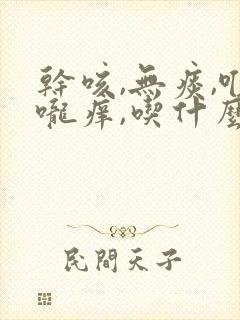 幹咳,無痰,
嚨痒,喫什麼
民間天子